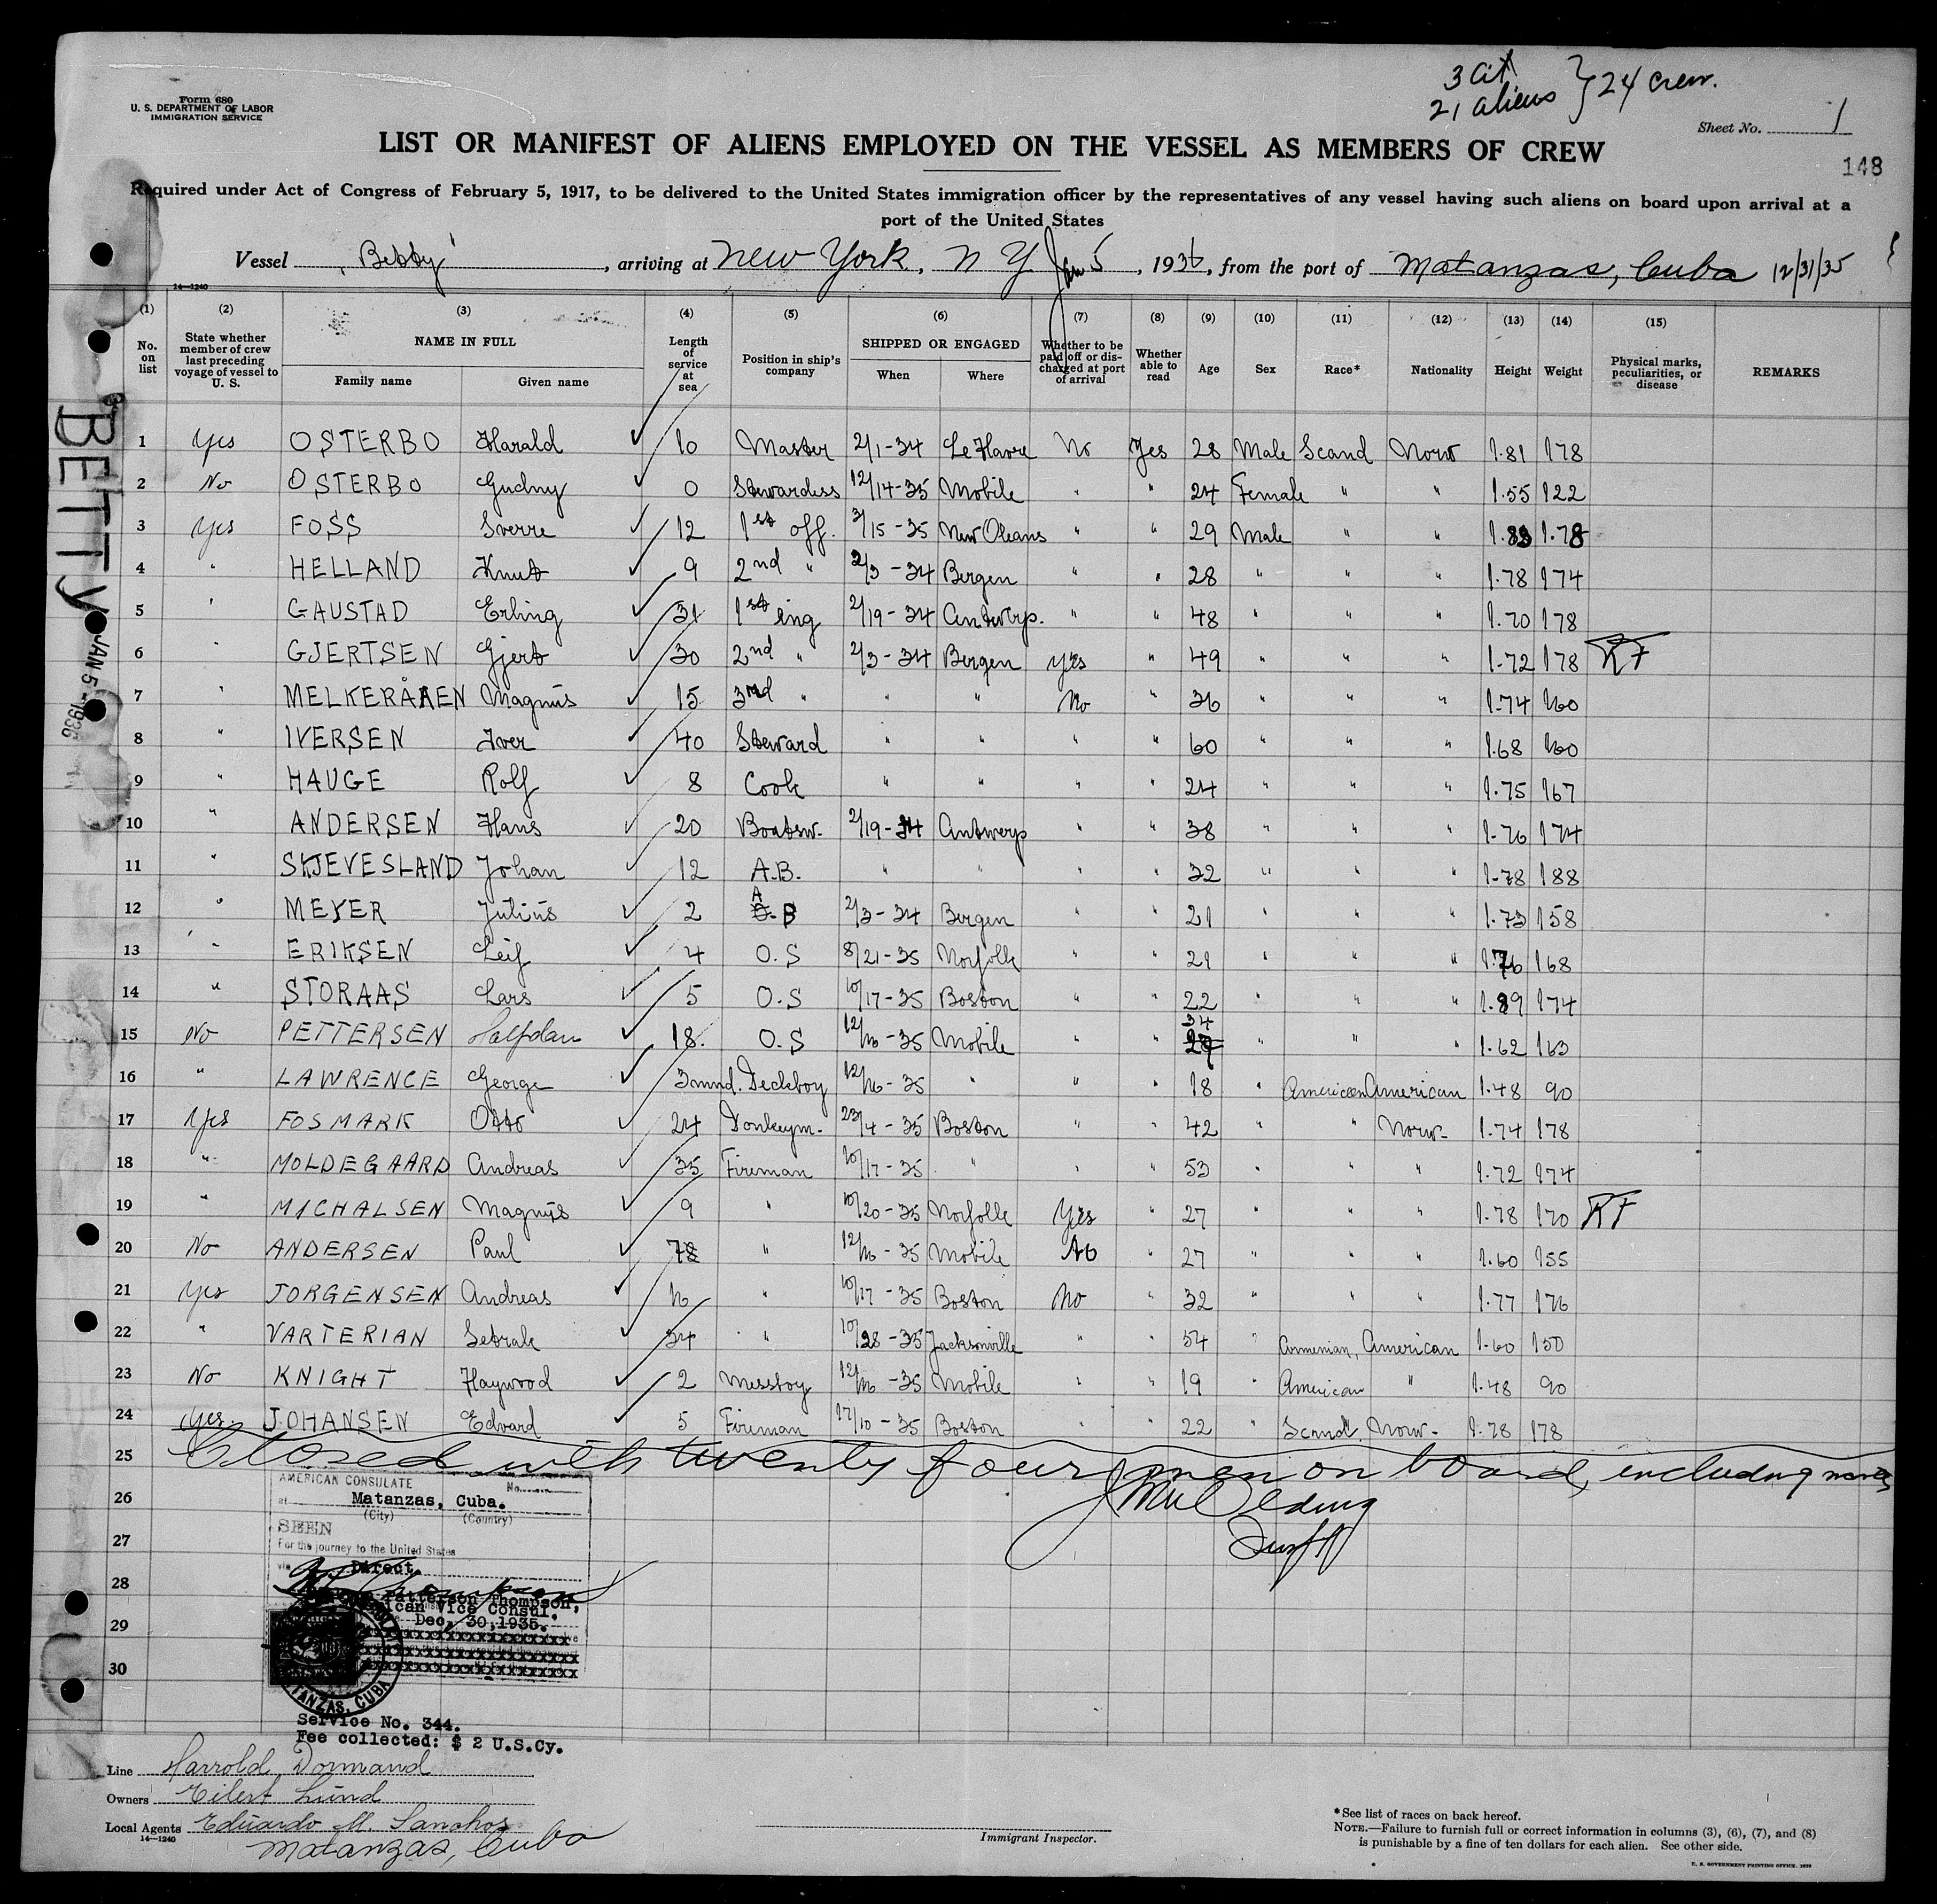 3 cit
21 aliens } 24 crew.
Form 680
U. S. DEPARTMENT OF LABOR
IMMIGRATION SERVICE
Sheet No. 1
LIST OR MANIFEST OF ALIENS EMPLOYED ON THE VESSEL AS MEMBERS OF CREW
148
Required under Act of Congress of February 5, 1917, to be delivered to the United States immigration officer by the representatives of any vessel having such aliens on board upon arrival at a
port of the United States
Vessel "Betty", arriving at New York, N Y Jan 5, 1936, from the port of Matanzas, Cuba 12/31/35
14—1240
BETTY JAN 5 - 1936
(1) (2) (3) (4) (5) (6) (7) (8) (9) (10) (11) (12) (13) (14) (15)
No. on list
State whether member of crew last preceding voyage of vessel to U. S.
NAME IN FULL
Family name Given name
Length of service at sea
Position in ship's company
SHIPPED OR ENGAGED
When Where
Whether to be paid off or discharged at port of arrival
Whether able to read
Age Sex Race* Nationality Height Weight
Physical marks, peculiarities, or disease
REMARKS
1 Yes OSTERBO Harald 10 Master 2/1-34 Le Havre No Yes 28 Male Scand Norw 1.81 178
2 No OSTERBO Gudny 0 Stewardess 12/14-35 Mobile " " 24 Female " " 1.55 122
3 Yes FOSS Sverre 12 1st off. 3/15-35 New Oleans " " 29 Male " " 1.83 1.78
4 " HELLAND Knut 9 2nd " 2/3-34 Bergen " " 28 " " " 1.78 174
5 " GAUSTAD Erling 31 1st eing 2/19-34 Antwerp. " " 48 " " " 1.70 178
6 " GJERTSEN Gjert 30 2nd " 2/3-34 Bergen Yes " 49 " " " 1.72 178 RF
7 " MELKERAAEN Magnus 15 3rd " " " No " 36 " " " 1.74 160
8 " IVERSEN Iver 40 Steward " " " " 60 " " " 1.68 160
9 " HAUGE Rolf 8 Cook " " " " 24 " " " 1.75 167
10 " ANDERSEN Hans 20 Boatsw. 2/19-34 Antwerp " " 38 " " " 1.76 174
11 " SKJEVESLAND Johan 12 A.B. " " " " 32 " " " 1.78 188
12 " MEYER Julius 2 A B 2/3-34 Bergen " " 21 " " " 1.73 158
13 " ERIKSEN Leif 4 O.S 8/21-35 Norfolk " " 21 " " " 1.76 168
14 " STORAAS Lars 5 O.S 10/17-35 Boston " " 22 " " " 1.89 174
15 No PETTERSEN Halfdan 18. O.S 12/16-35 Mobile " " 34 " " " 1.62 163
16 " LAWRENCE George 3 mnd. Deckboy 12/16-35 " " " 18 " American American 1.48 90
17 Yes FOSMARK Otto 24 Donkeym. 23/4-35 Boston " " 42 " " Norw- 1.74 178
18 " MOLDEGAARD Andreas 35 Fireman 10/17-35 " " " 53 " " " 1.72 174
19 " MICHALSEN Magnus 9 " 10/20-35 Norfolk Yes " 27 " " " 1.78 170 RF
20 No ANDERSEN Paul " 12/16-35 Mobile No " 27 " " " 1.60 155
21 Yes JORGENSEN Andreas 16 " 10/17-35 Boston No " 32 " " " 1.77 176
22 " VARTERIAN Setrak 34 " 10/28-35 Jacksonville " " 54 " Armenian, American 1.60 150
23 No KNIGHT Haywood 2 Messboy 12/16-35 Mobile " " 19 " American " 1.48 90
24 Yes. JOHANSEN Edvard 5 Fireman 17/10-35 Boston " " 22 " Scand. Norw- 1.78 178
25 Closed with twenty four men on board, including
26
27
28
29
30
AMERICAN CONSULATE
No.
at Matanzas, Cuba.
(City) (Country)
SEEN
For the journey to the United States
via Direct.
Patterson Thompson,
American Vice Consul.
Dec, 30, 1935.
MATANZAS, CUBA
Service No. 344.
Fee collected: $ 2 U.S.Cy.
Line Harrold, Dormand
Owners Eilert Lund
Local Agents Eduardo M. Sanchos
14—1240
Matanzas, Cuba
Immigrant Inspector.
*See list of races on back hereof.
NOTE.—Failure to furnish full or correct information in columns (3), (6), (7), and (8)
is punishable by a fine of ten dollars for each alien. See other side.
U. S. GOVERNMENT PRINTING OFFICE